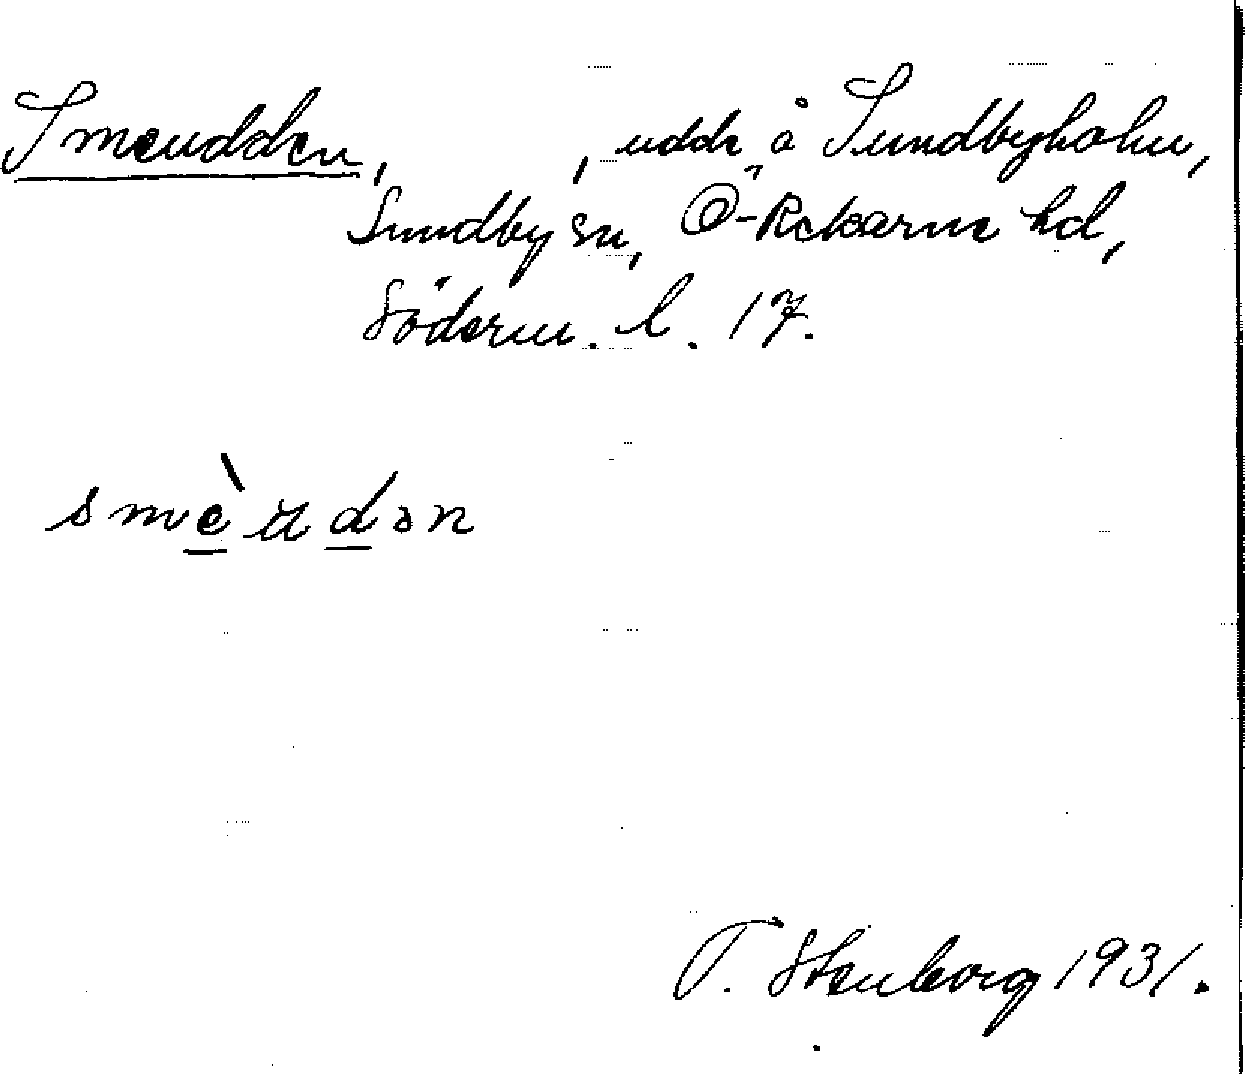 Smeudden, , udde å Sundbyholm,
Sundby sn, Ö-Rekarne hd,
Söderm. l. 17.
smèudən
T. Stenborg 1931.